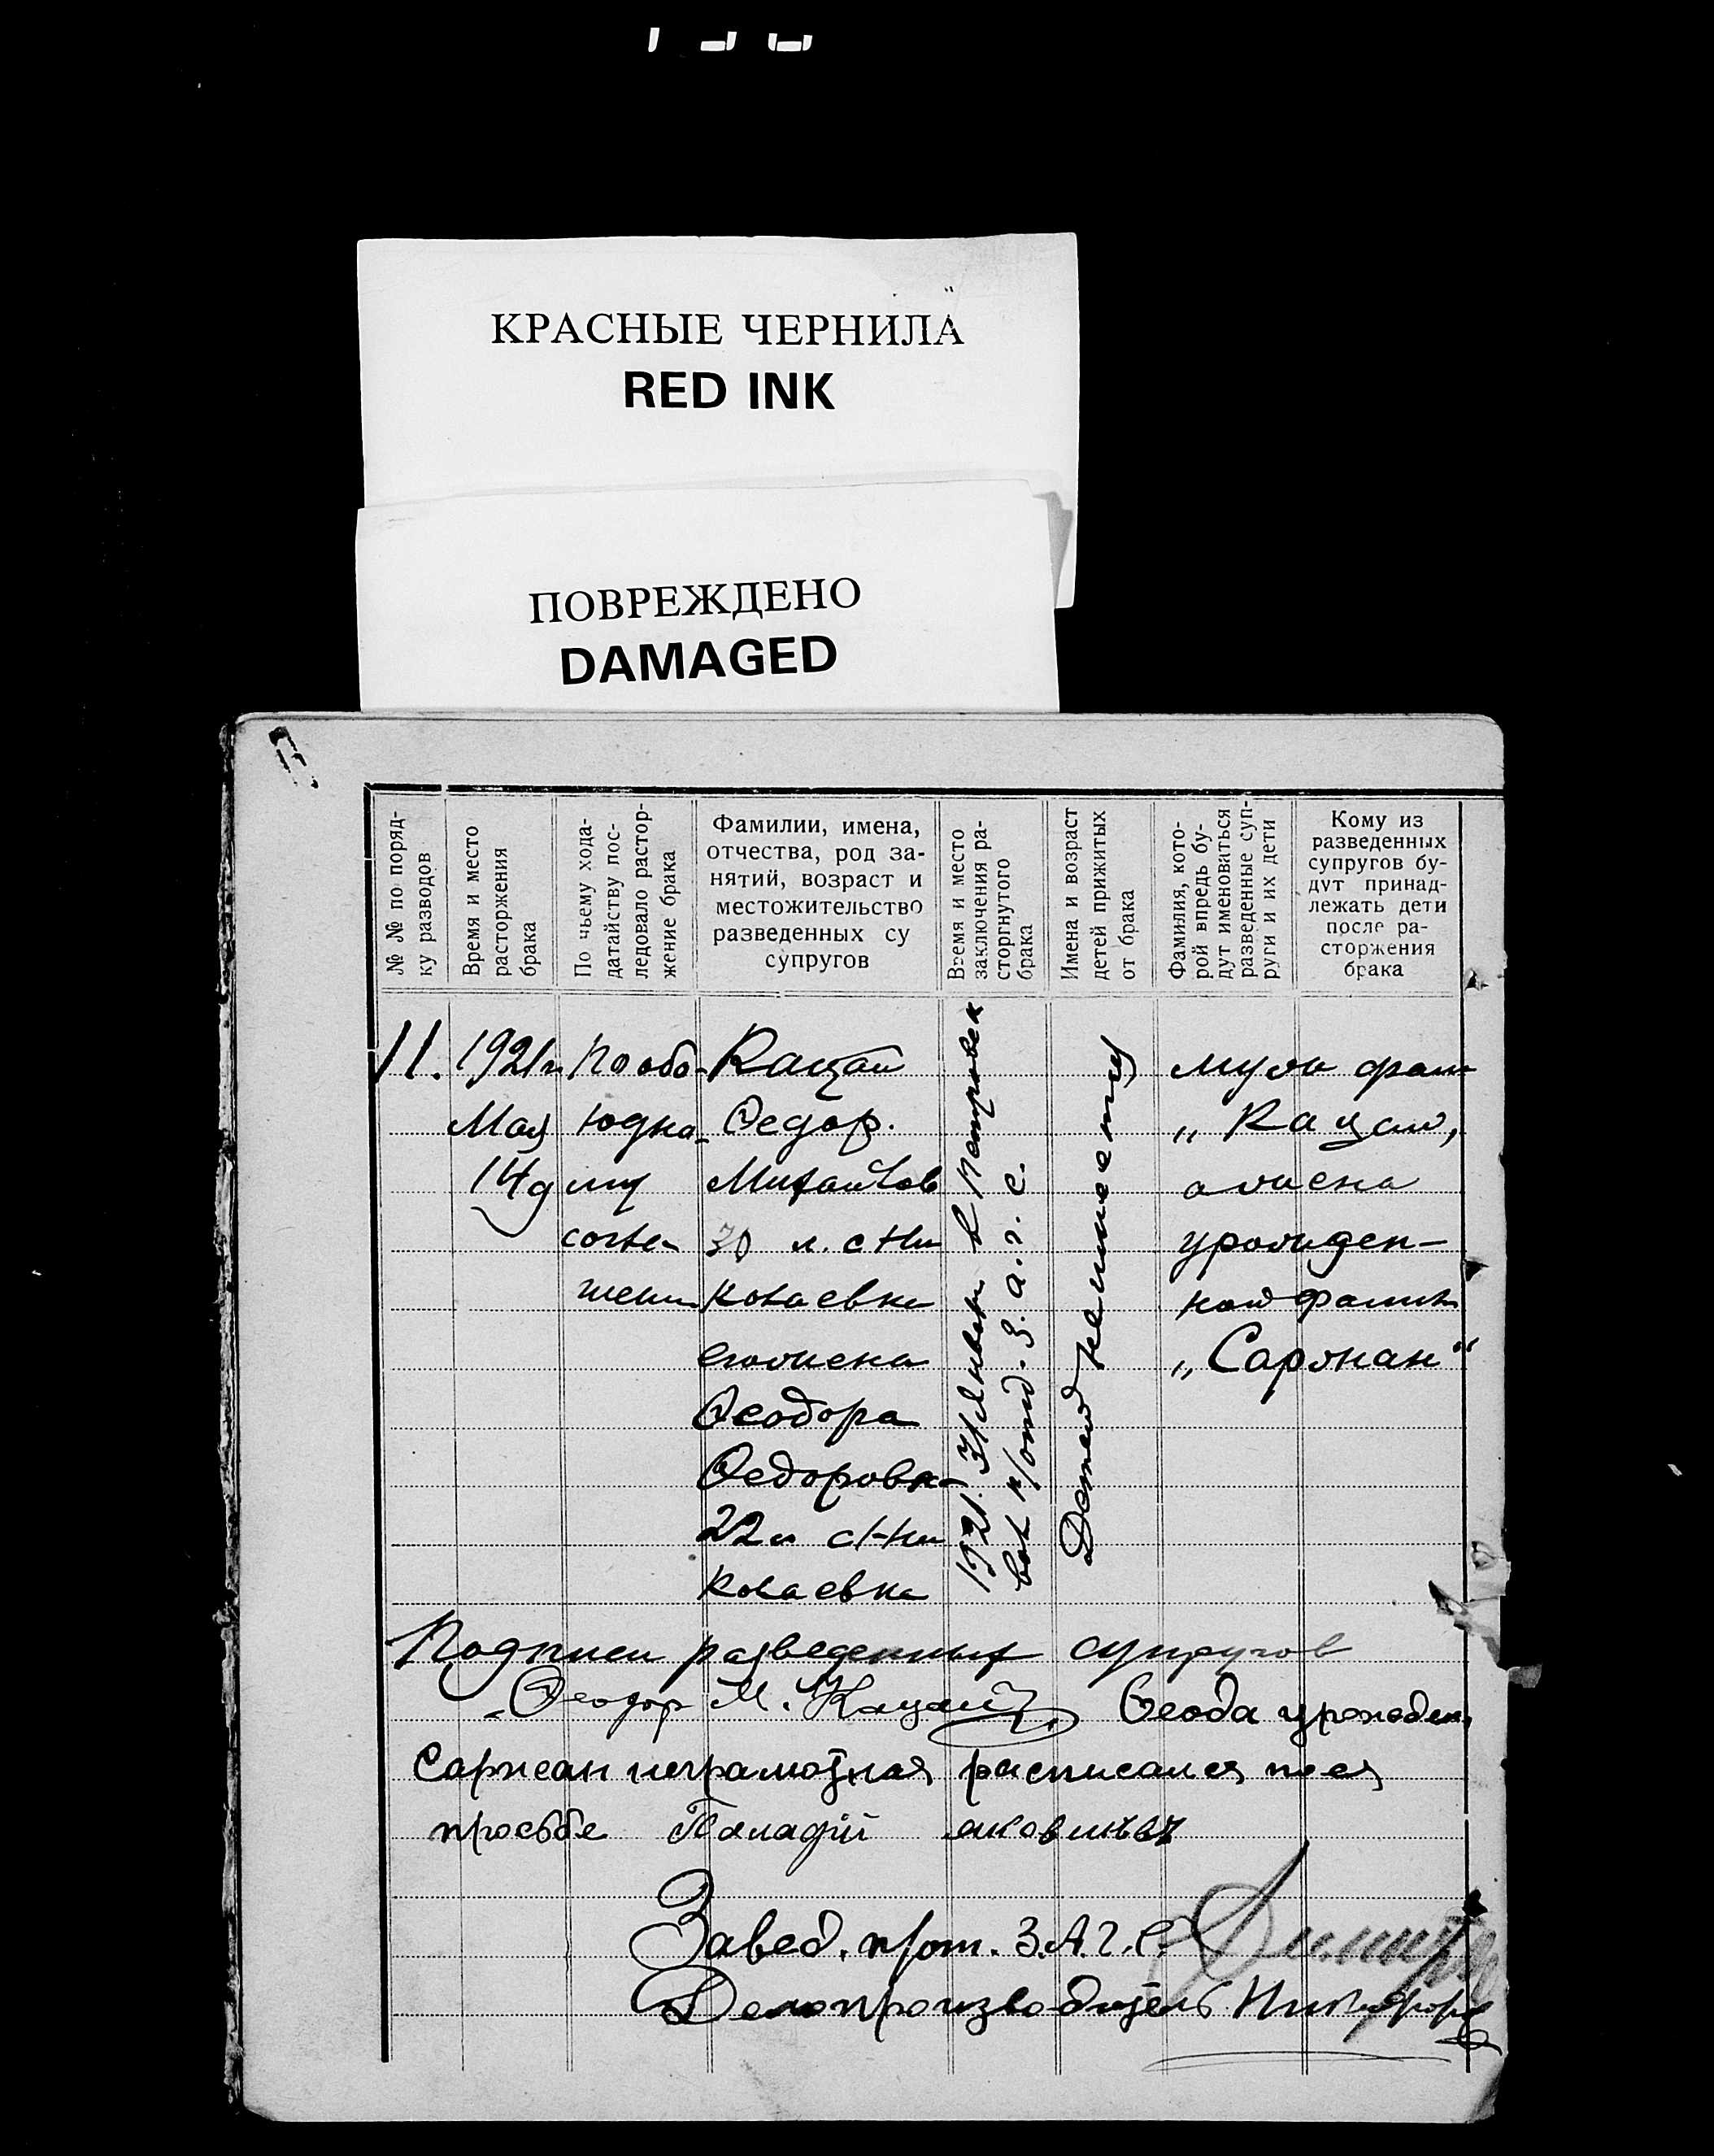 КРАСНЫЕ ЧЕРНИЛА
RED INK
ПОВРЕЖДЕНО
DAMAGED
№ № по поряд-
ку разводов
Время и место
расторжения
брака
По чьему хода-
датайству пос-
ледовало растор-
жение брака
Фамилии, имена,
отчества, род за-
нятий, возраст и
местожительство
разведенных су
супругов
Время и место
заключения ра-
сторгнутого
брака
Имена и возраст
детей прижитых
от брака
Фамилия, кото-
рой впредь бу-
дут именоваться
разведенные суп-
руги и их дети
Кому из
разведенных
супругов бу-
дут принад-
лежать дети
после ра-
сторжения
брака
11.
1921г
Мая
14д
По обо-
юдно-
му
согла-
шени
Кацай
Федор.
Михайлов
30 л. с Ни
колаевки
его жена
Феодора
Федоровна
22 л с Ни
колаевка
1921. 31 Января в Петровск
вол п/отд. З. а. г. с.
Детей неимету
муж фам
„Кацай,
а жена
урожден-
ной фамил
„Саржан“
Подписи разведенных супругов
Феодор М. Кацай Феода урожден.
Саржан неграмотная расписался по ея
просьбе Паладий
Завед. п/от. З.А.Г.С.
Делопроизводитель